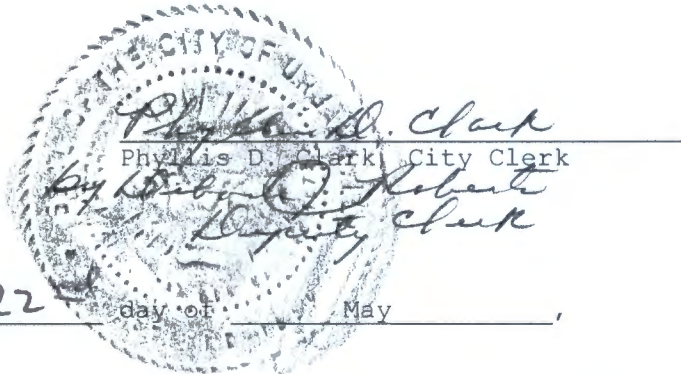 THE CITY OF UR
Phyllis D. Clark
Phyllis D. Clark, City Clerk
by Debra J. Roberts
Deputy Clerk
22nd day of May,